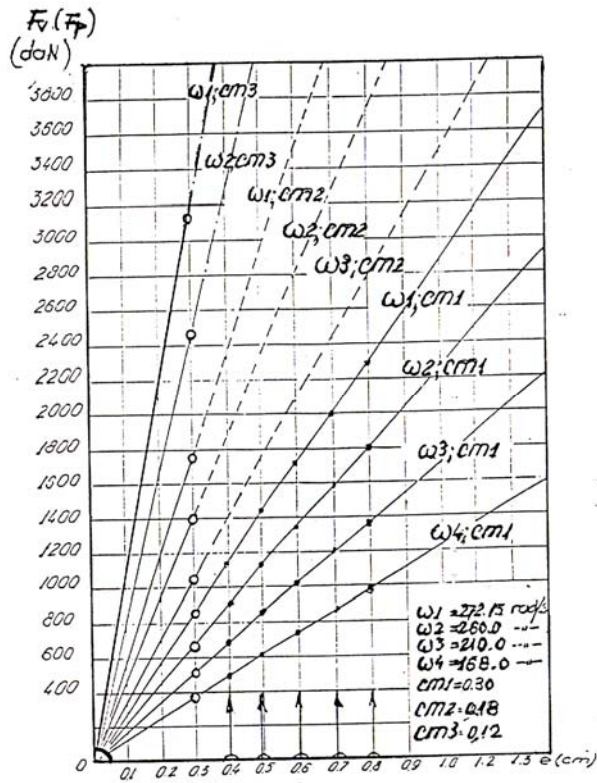 Fv (Fp)
(daN)
3800
3600
3400
3200
3000
2800
2600
2400
2200
2000
1800
1600
1400
1200
1000
800
600
400
ω1; cm3
ω2; cm3
ω1; cm2
ω2; cm2
ω3; cm2
ω1; cm1
ω2; cm1
ω3; cm1
ω4; cm1
ω1 = 272.15 rad/s
ω2 = 260.0 -"-
ω3 = 210.0 -"-
ω4 = 168.0 -"-
cm1 = 0.30
cm2 = 0.18
cm3 = 0,12
0 0.1 0.2 0.3 0.4 0.5 0.6 0.7 0.8 0.9 1.0 1.1 1.2 1.3 e (cm)